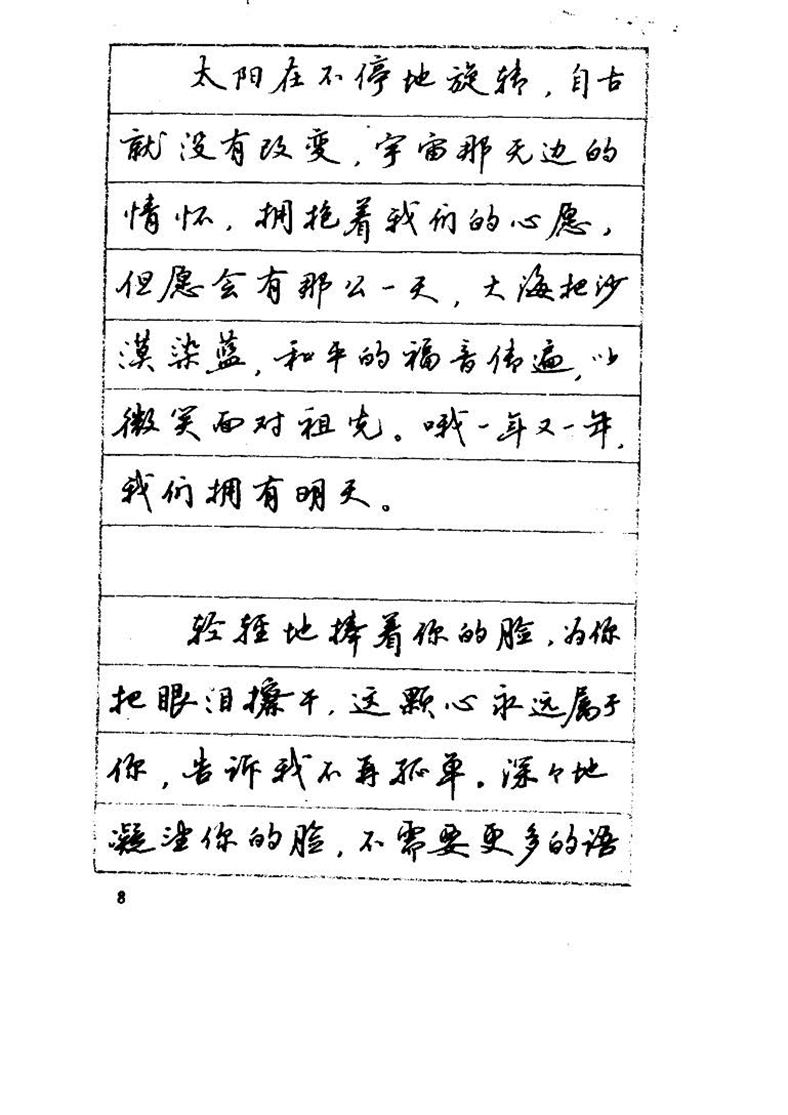 太阳在不停地旋转，自古
就没有改变，宇宙那无边的
情怀，拥抱着我们的心愿，
但愿会有那么一天，大海把沙
漠染蓝，和平的福音传遍，以
微笑面对祖先。哦一年又一年，
我们拥有明天。
轻轻地捧着你的脸，为你
把眼泪擦干，这颗心永远属于
你，告诉我不再孤单。深々地
凝望你的脸，不需要更多的语
8